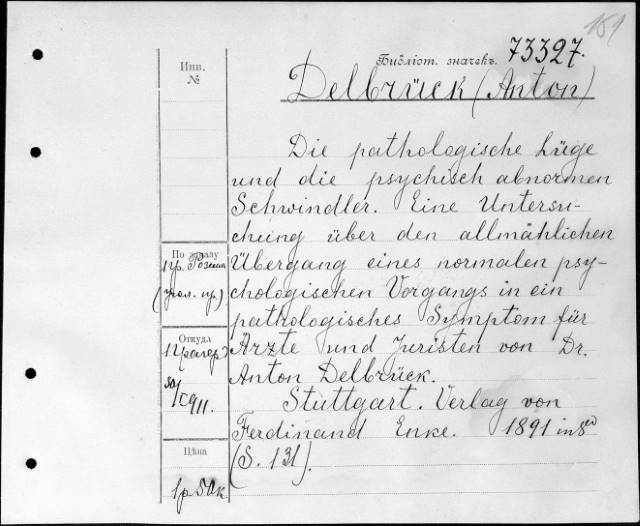 Библіот. значекъ 73327.
Инв.
№
Delbrück (Anton)
Die pathologische Lüge
und die psychisch abnormen
Schwindler. Eine Untersu-
chung über den allmählichen
Übergang eines normalen psy-
chologischen Vorgangs in ein
pathologisches Symptom für
Ärzte und Juristen von Dr.
Anton Delbrück.
Stuttgart. Verlag von
Ferdinand Enke. 1891 in 8º
(S. 131).
По заказу
пр. Розина
(угол. пр.)
Откуда
1911.
Цѣна
1р 50к